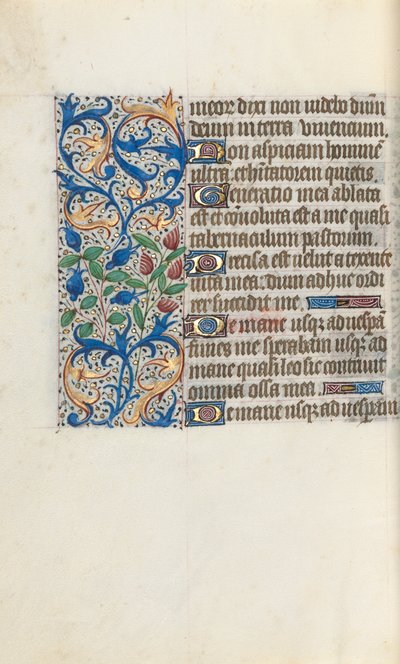 meor dixi non videbo dnm
deum in terra viventium.
Non aspiciam hominē
ultra et hītatorem quietis.
Generatio mea ablata
est et cōvoluta est a me quasi
tabernaculum pastorum.
Precisa est velut a texente
vita mea: dum adhuc ordi
rer succidit me.
De mane usqꝫ ad vespām
finies me sperabam usqꝫ ad
mane quasi leo sic contrivit
omnia ossa mea
De mane usqꝫ ad vesperam